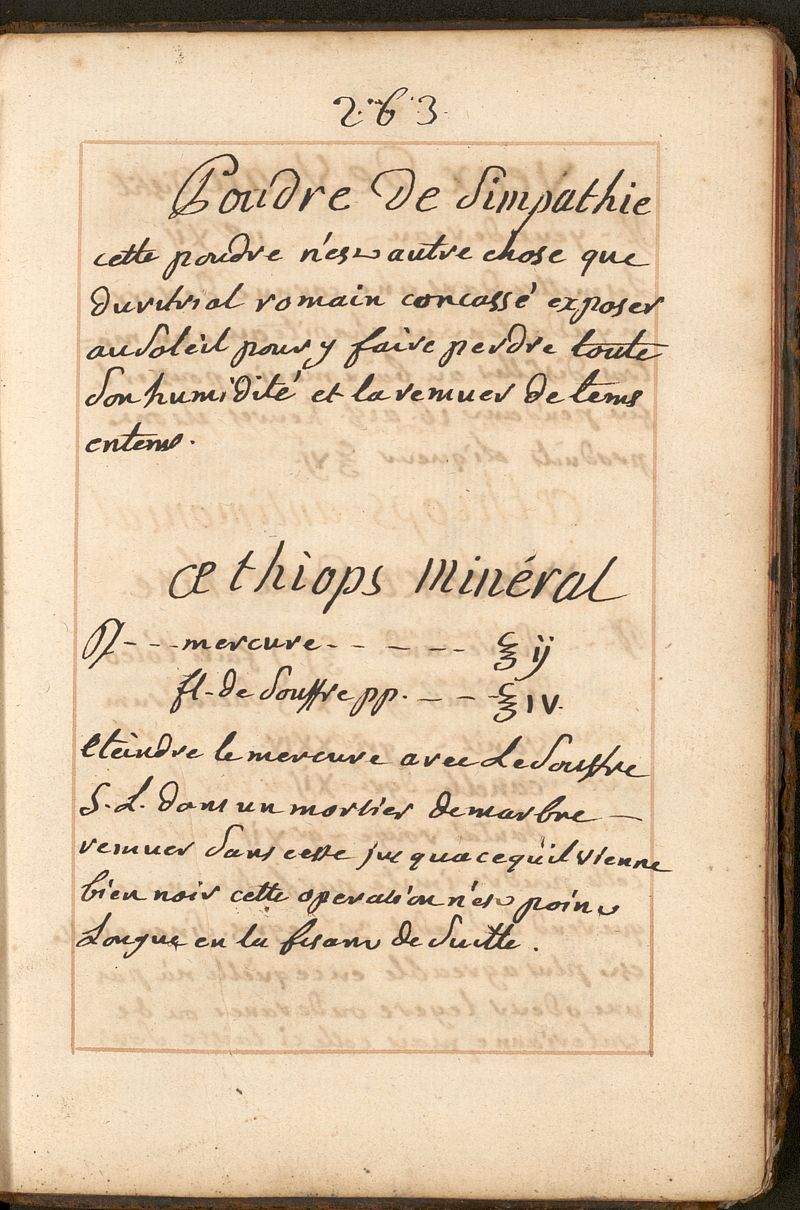 263
Poudre De Simpathie
cette poudre n'est autre chose que
du vitriol romain concassé exposer
au Soleil pour y faire perdre toute
Son humidité et la remuer de tems
entems.
æthiops minéral
♃ - - - mercure - - - - - ℥ ij
fl - de Souffre pp. - - - ℥ IV.
eteindre le mercure avec Le Souffre
S. L. dans un mortier de marbre —
remuer Sans cesse jusquacequil vienne
bien noir cette operation n'est point
Longue en la fesant de Suitte.